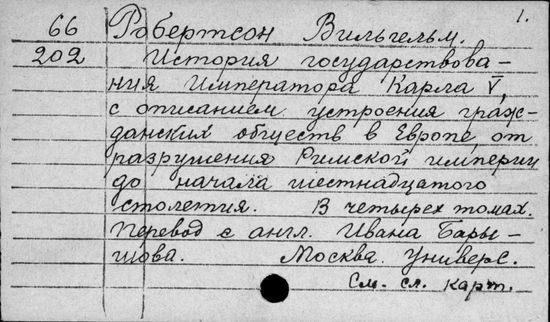 1.
66 Робертсон Вильгельм.
202 История государствова-
ния Императора Карла V,
с описанием устроения граж-
данских обществ в Европе, от
разрушения Римской империи
до начала шестнадцатого
столетия. В четырех томах.
Перевод с англ. Ивана Бары-
шова. Москва. Универс.
См. сл. карт.